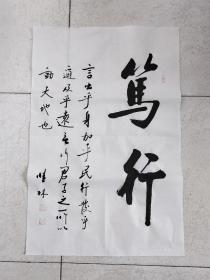 篤行
言出乎身加乎民行發乎
邇見乎遠言行君子之所以
動天地也